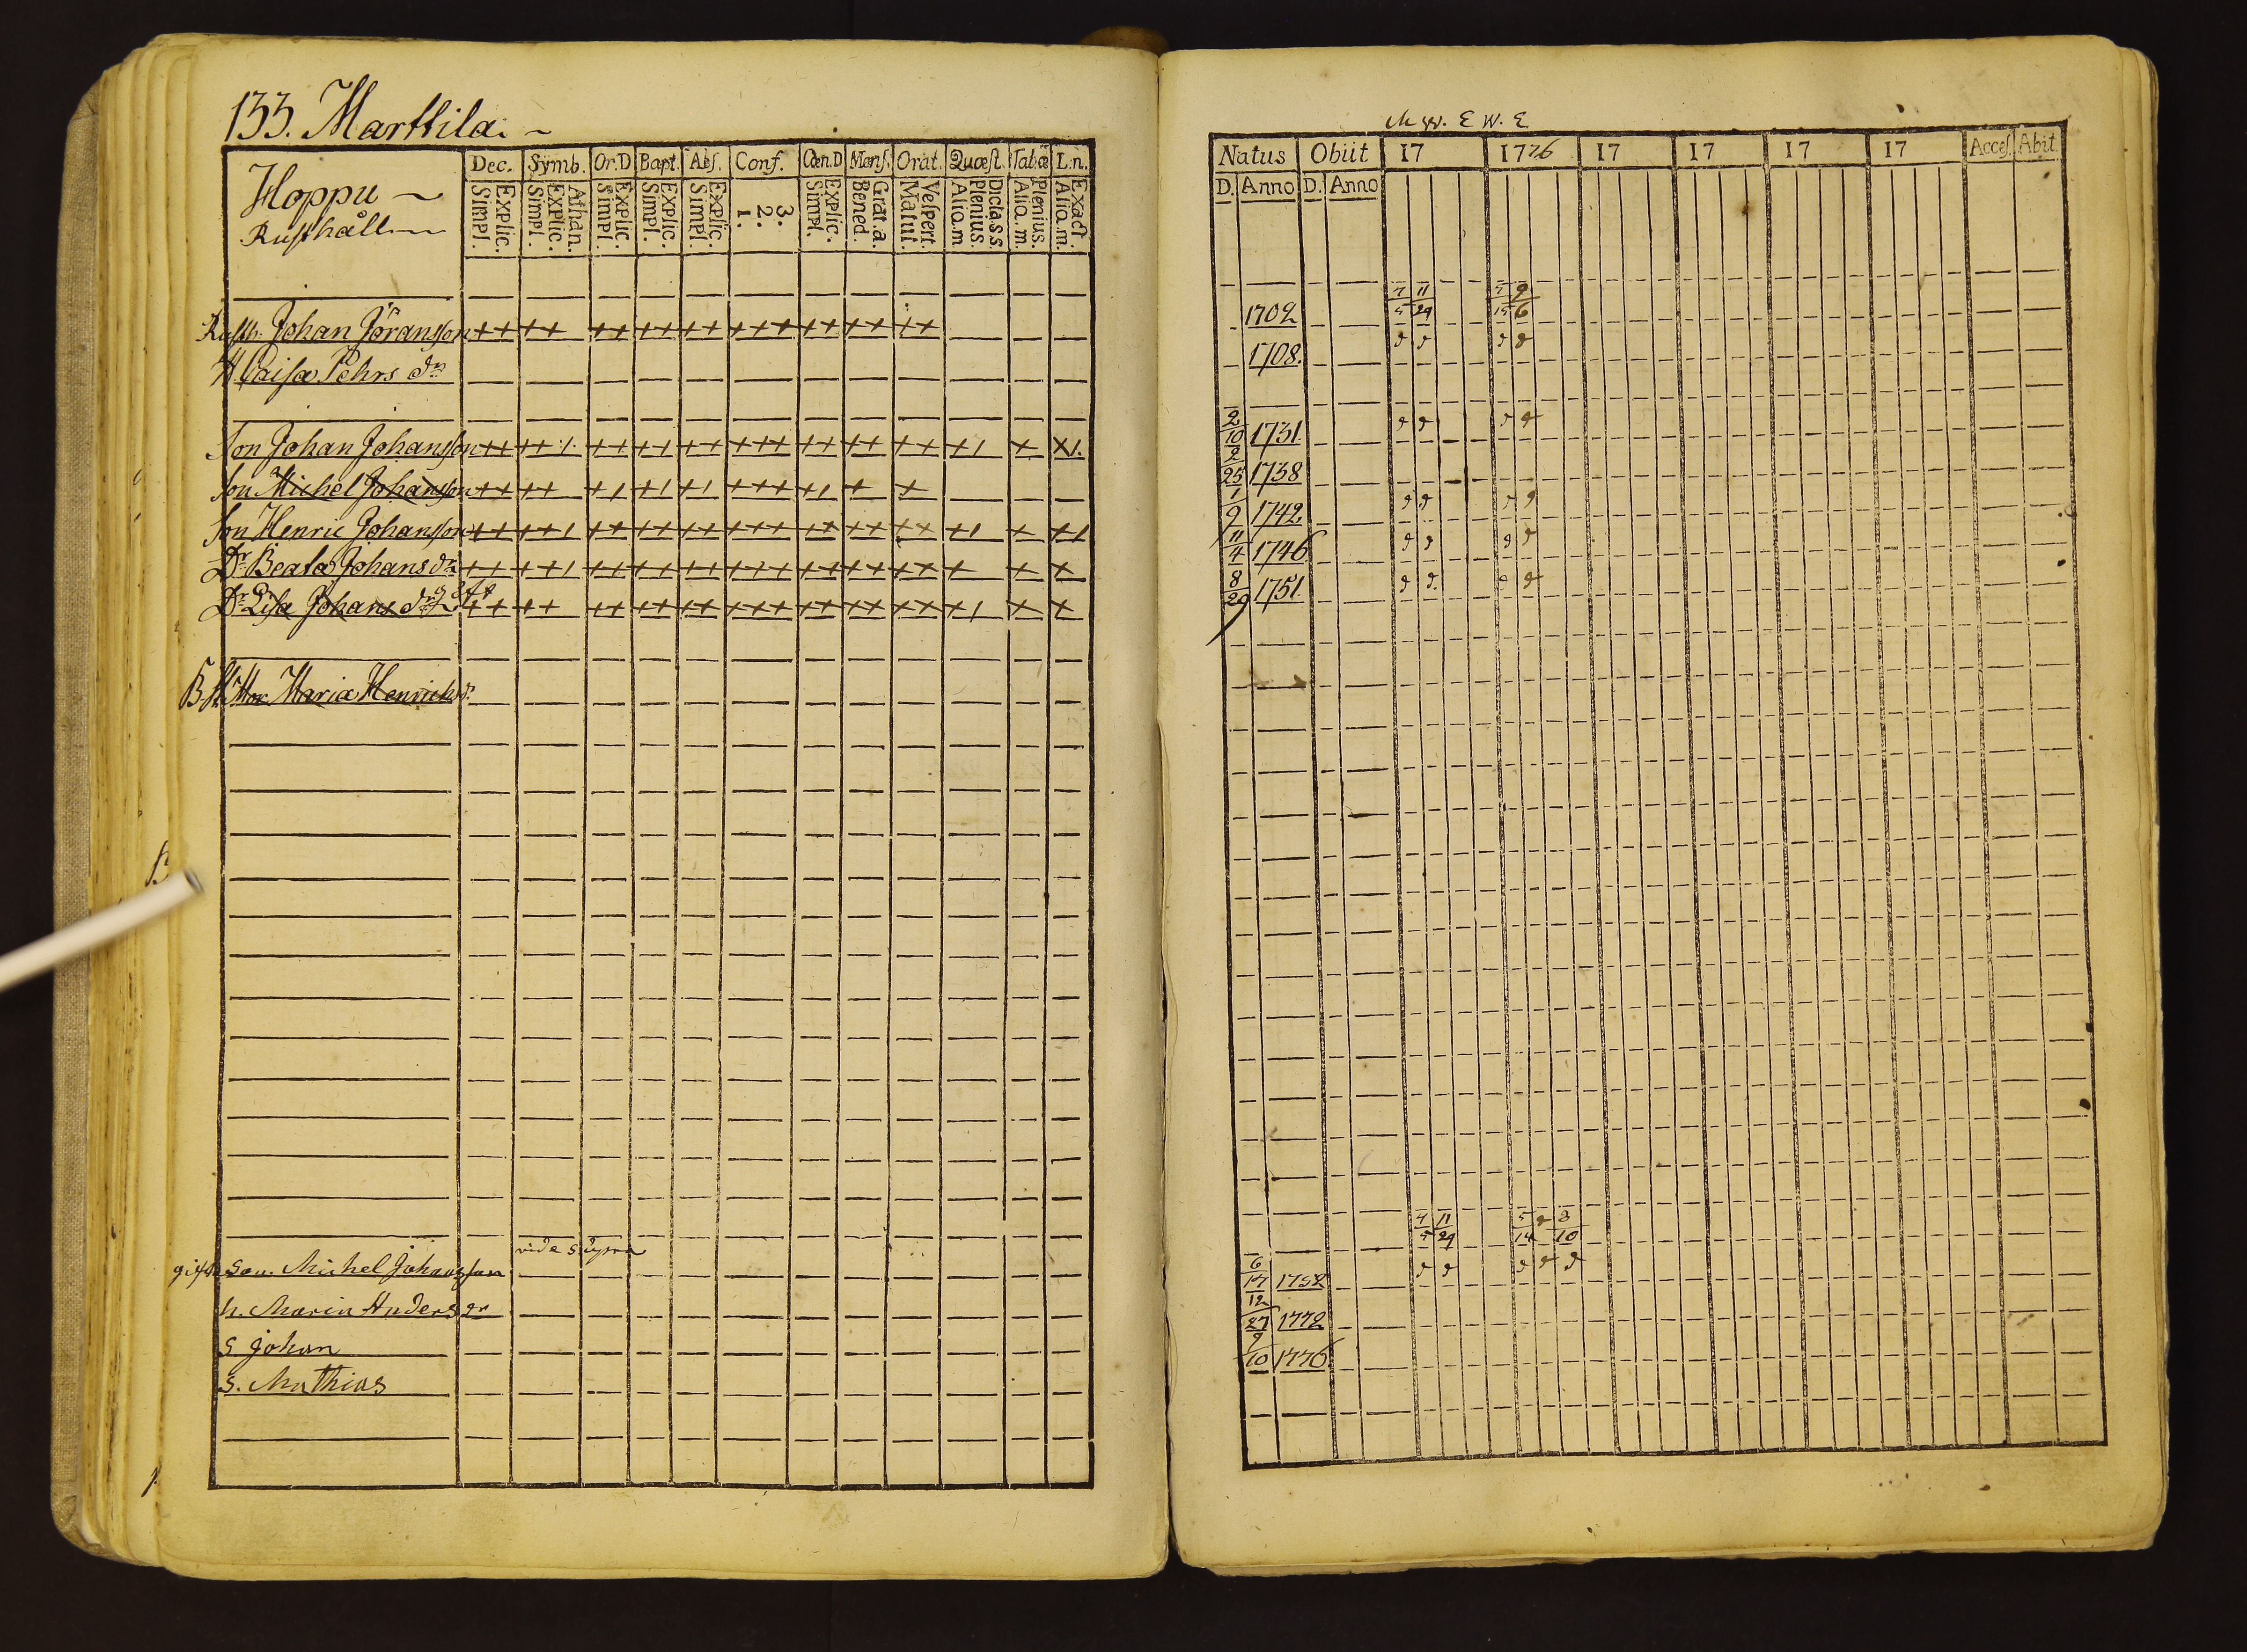 133. Marttila.
Hoppu
Rusthåll
Dec. Symb. Or.D Bapt. Abs. Conf. Cœn.D Mens. Orat. Quæst. Tabæ L:n.
Simpl. Explic. Simpl. Explic. Athan. Simpl. Explic. Simpl. Explic. Simpl. Explic. 1. 2. 3. Simpl. Explic. Bened. Grat.a. Matut. Vespert. Alia.m Plenius. Dicta.s.s. Alia.m. Plenius. Alia.m. Exact.
Rusth. Johan Jöransson
H Caisa Pehrs dr
Son Johan Johansson
Son Michel Johansson
Son Henric Johansson
Dr Beata Johans dr
Dr Lisa Johans dr
Maria Henrichs dr
vide supra
gifta Son. Michel Johansson
h. Maria Anders dr
S Johan
S. Mathias
Natus Obiit 17 1776 17 17 17 17 Access. Abit
D. Anno D. Anno
1702 4/5 11/29
1708.
2/10 1731
2/25 1738
1/9 1742
11/4 1746
8/29 1751
4/5 11/29 5/14 8/10
6/17 1752
12/27 1772
9/10 1776